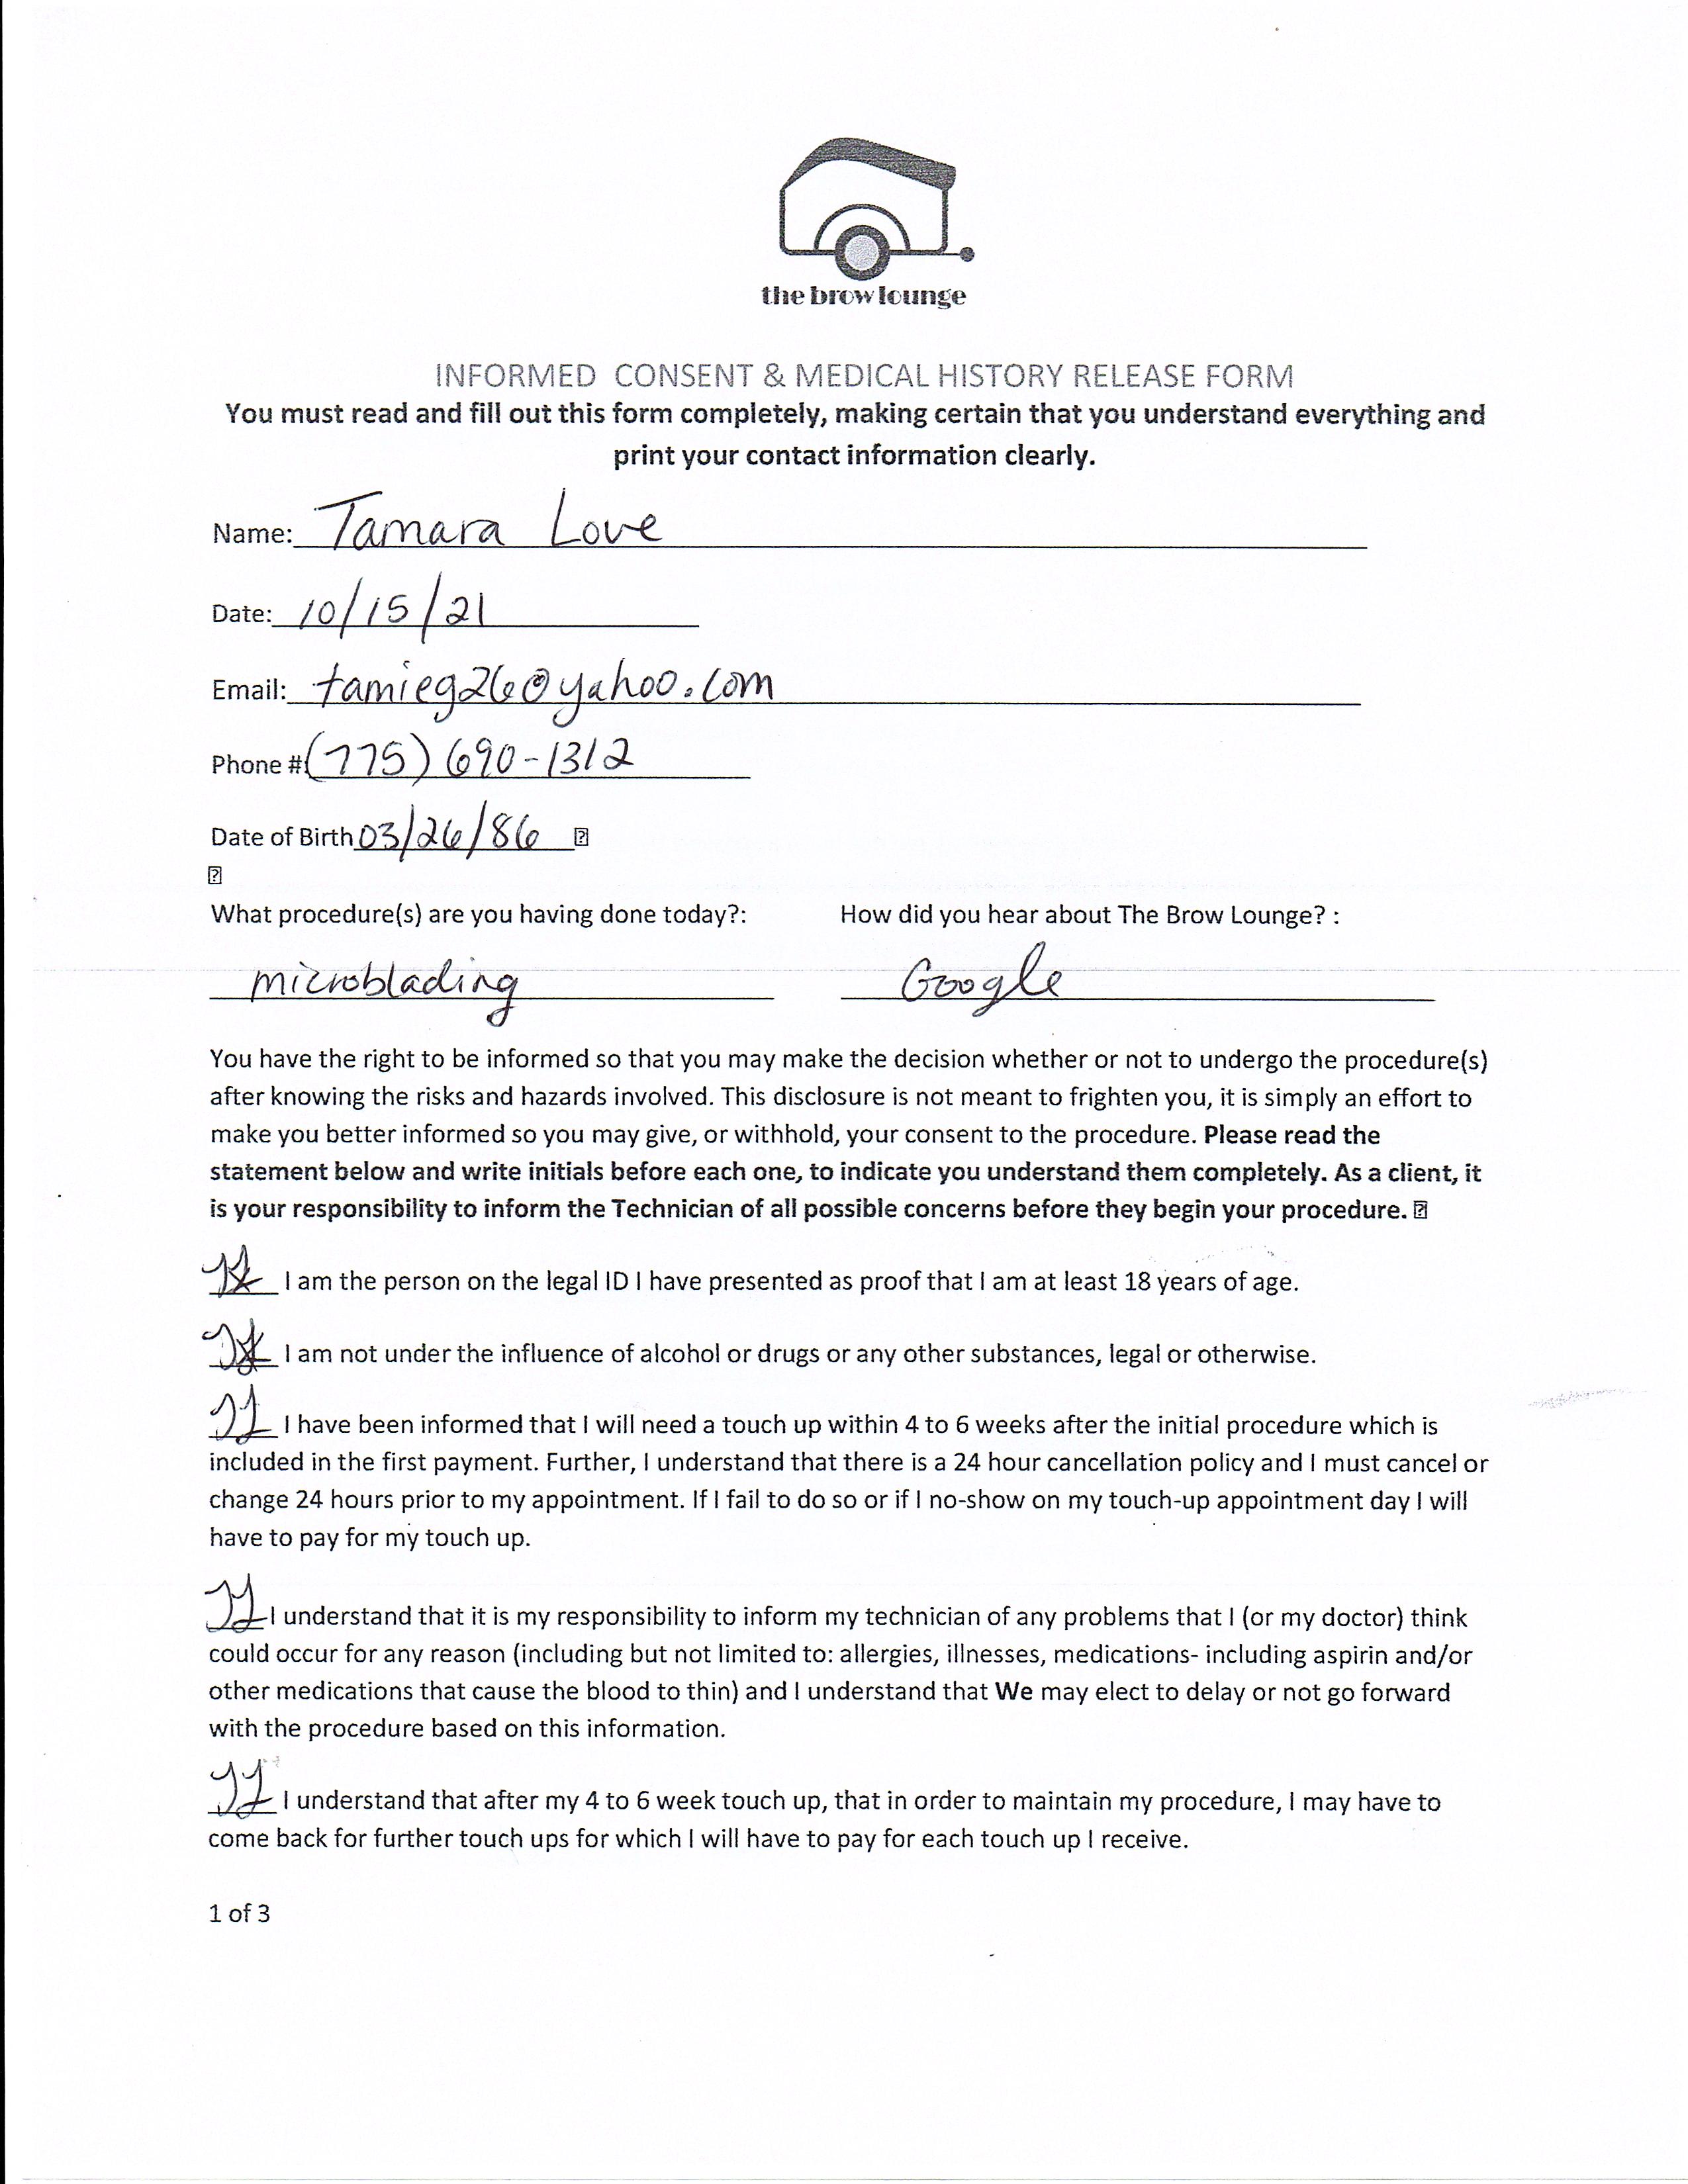 the brow lounge
INFORMED CONSENT & MEDICAL HISTORY RELEASE FORM
You must read and fill out this form completely, making certain that you understand everything and
print your contact information clearly.
Name: Tamara Love
Date: 10/15/21
Email: tamieg26@yahoo.com
Phone #: (775) 690-1312
Date of Birth 03/26/86
What procedure(s) are you having done today?: How did you hear about The Brow Lounge? :
microblading Google
You have the right to be informed so that you may make the decision whether or not to undergo the procedure(s)
after knowing the risks and hazards involved. This disclosure is not meant to frighten you, it is simply an effort to
make you better informed so you may give, or withhold, your consent to the procedure. Please read the
statement below and write initials before each one, to indicate you understand them completely. As a client, it
is your responsibility to inform the Technician of all possible concerns before they begin your procedure.
I am the person on the legal ID I have presented as proof that I am at least 18 years of age.
I am not under the influence of alcohol or drugs or any other substances, legal or otherwise.
I have been informed that I will need a touch up within 4 to 6 weeks after the initial procedure which is
included in the first payment. Further, I understand that there is a 24 hour cancellation policy and I must cancel or
change 24 hours prior to my appointment. If I fail to do so or if I no-show on my touch-up appointment day I will
have to pay for my touch up.
I understand that it is my responsibility to inform my technician of any problems that I (or my doctor) think
could occur for any reason (including but not limited to: allergies, illnesses, medications- including aspirin and/or
other medications that cause the blood to thin) and I understand that We may elect to delay or not go forward
with the procedure based on this information.
I understand that after my 4 to 6 week touch up, that in order to maintain my procedure, I may have to
come back for further touch ups for which I will have to pay for each touch up I receive.
1 of 3